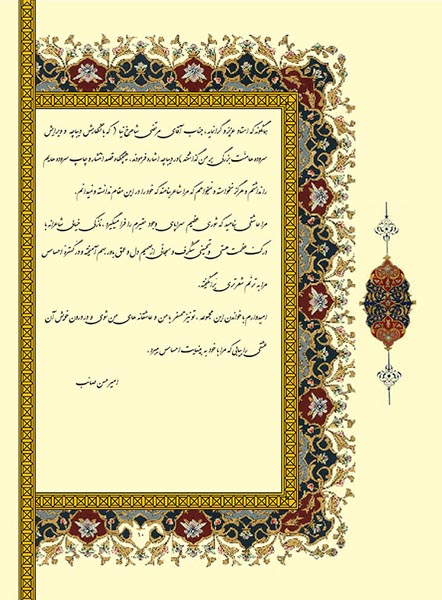 همانگونه که استاد عزیز و گرانمایه، جناب آقای مرتضی شاهرخ نیا ( که با نگارش دیباچه و ویرایش
سروده ها منت بزرگی بر من گذاشتند ) در دیباچه اشاره فرمودند، هیچگاه قصد انتشار و چاپ سروده هایم
را نداشتم و هرگز نخواسته و نمیخواهم که مرا شاعر بنامند که خود را در این مقام ندانسته و نمیدانم.
مرا عاشقی بنامید که شوری عظیم سراپای وجود حقیرم را فرا میگیرد، نازکی خیال شاعرانه با
درک عظمت هستی و تحسینی شگرف و سبحانی از صمیم دل و عمق باور بهم آمیخته و در گستره احساس
مرا به ترنم شعر تری برانگیخته.
امیدوارم با خواندن این مجموعه ، تو نیز همسفر با من و عاشقانه های من شوی و در درون خویش آن
عشقی را بیابی که مرا با خود به بینهایت احساس میبرد.
امیرحسن صائب
۱۰